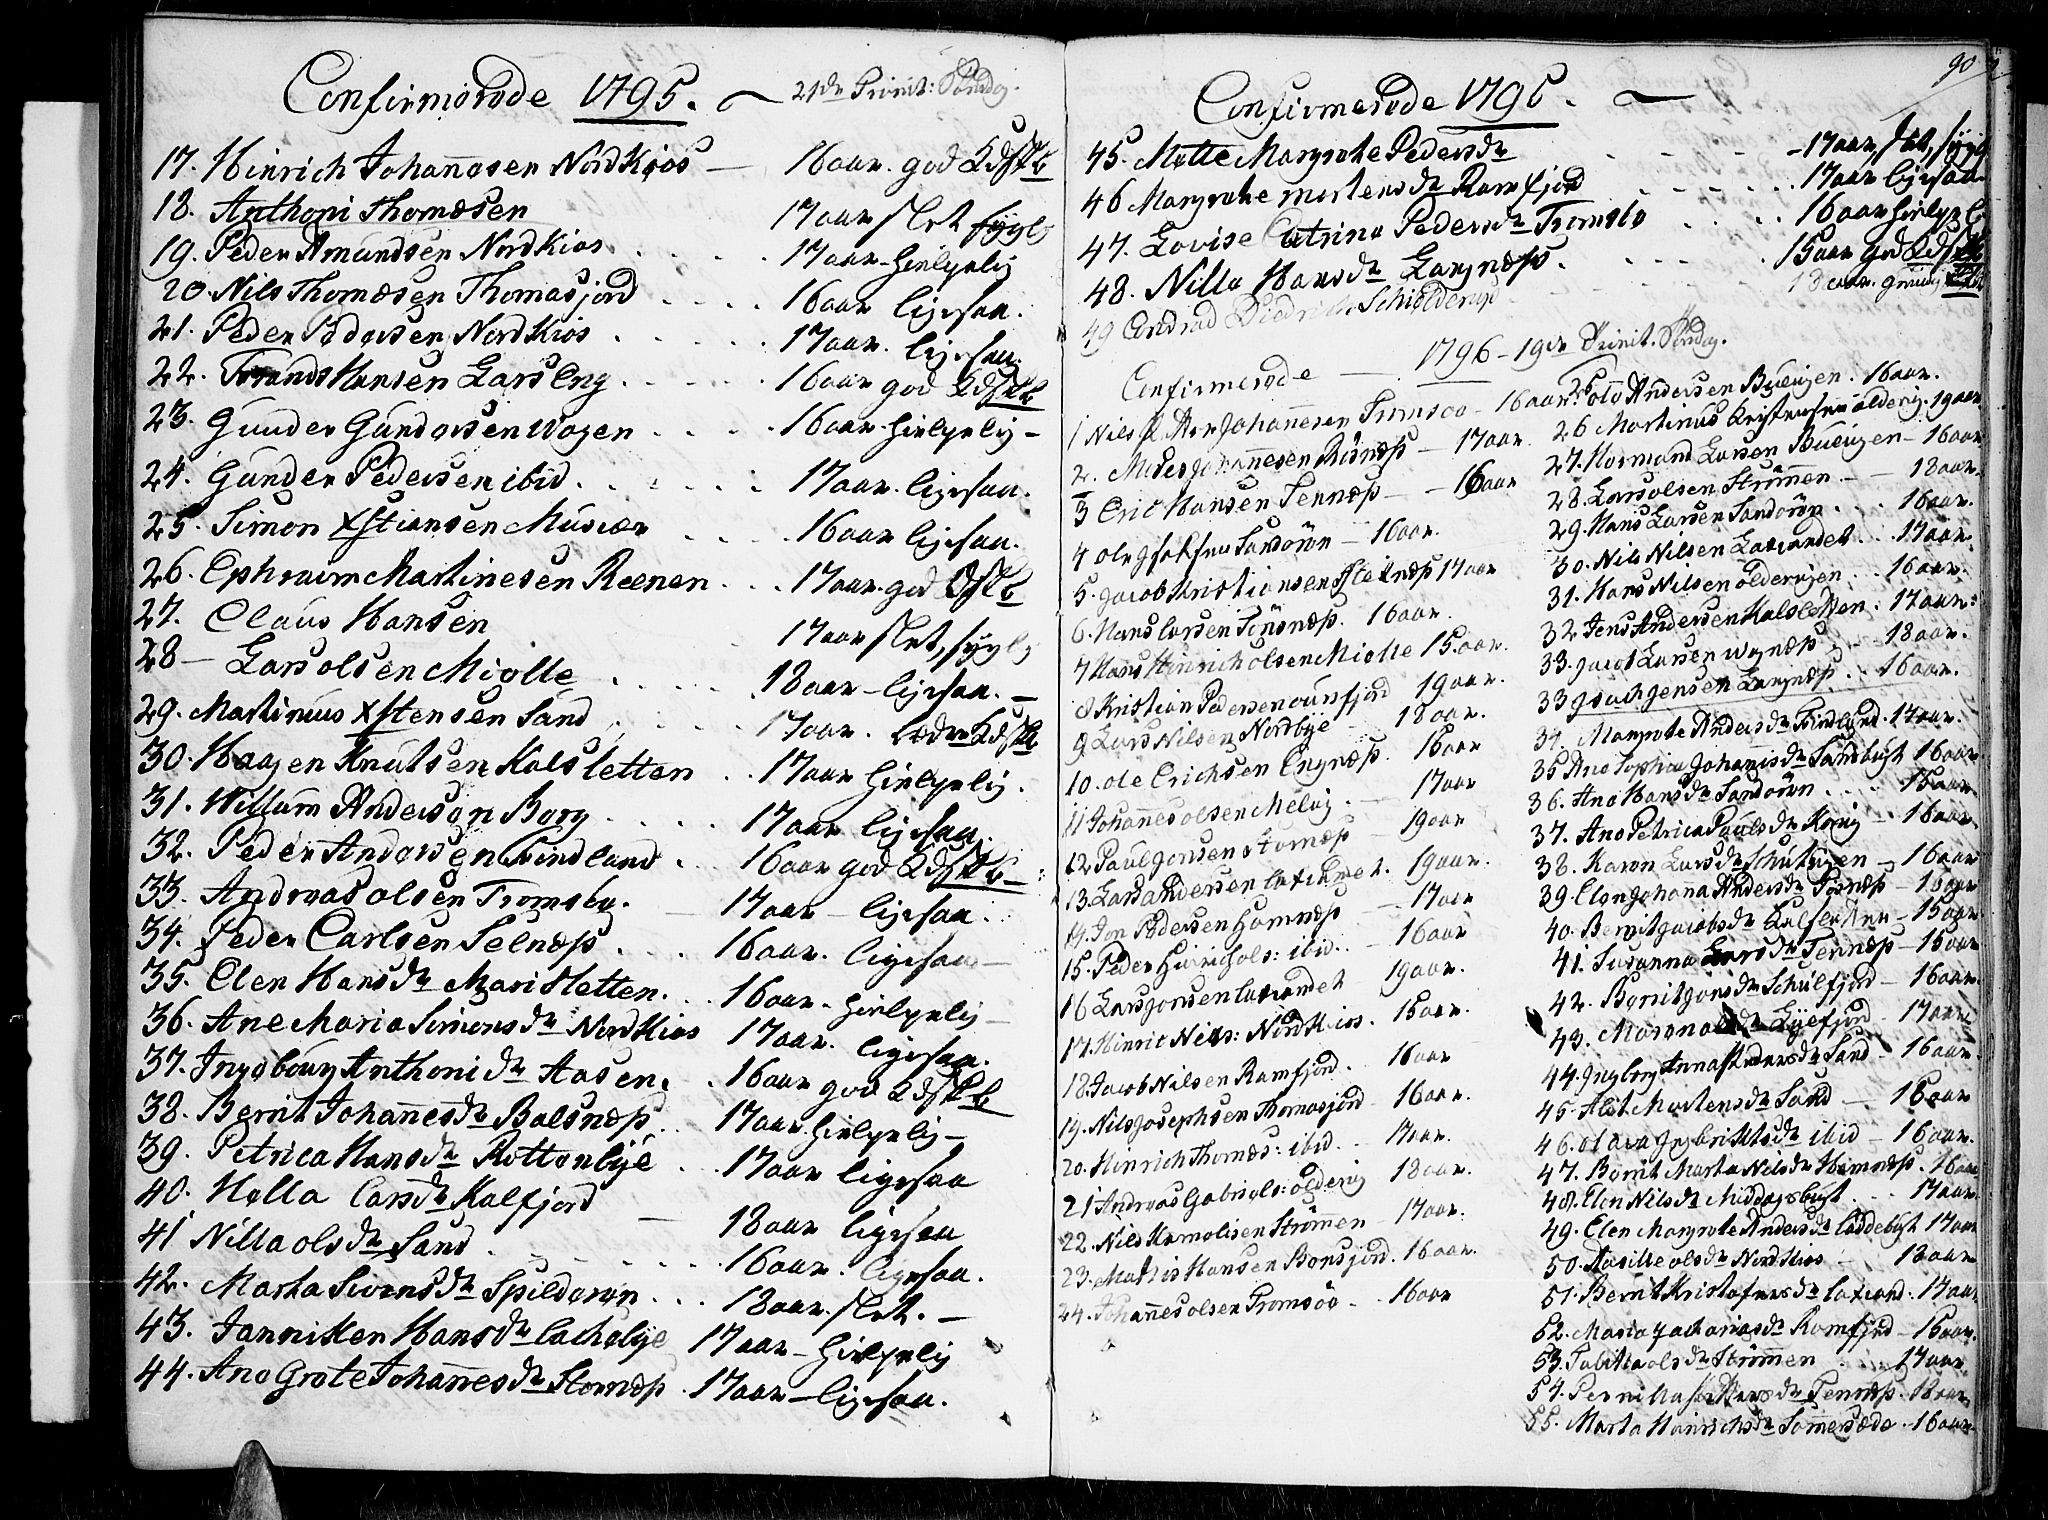 Confirmerede 1795. 21de Trinit: Søndag.
17. Hinrich Johannesen NordKios — 16 aar. god Kdsk.
18. Anthoni Thomæsen 17 aar slet
19. Peder Amundsen NordKios 17 aar - hielpelig
20. Nils Thomæsen Thomasjord 16 aar ligesaa.
21. Peder Pedersen NordKios 17 aar. ligesaa.
22. Hansen Larseng 16 aar god Kdsk.
23. Gunder Gundersen Wogen 16 aar hielpelig -
24. Gunder Pedersen ibid. 17 aar. ligesaa.
25. Simon Xstiansen Musvær 16 aar ligesaa.
26. Ephraim Martinesen Reenen 17 aar. god
27. Claus Hansen 17 aar slet,
28 - Lars olsen Miølle 18 aar - ligesaa. -
29. Martinius Xstensen Sand 17 aar.
30. Haagen Knutsen Kalsletten 17 aar hielpelig.
31. Willum Andersen Borg 17 aar ligesaa.
32. Peder Andersen Tvindland 16 aar god Kdsk.
33. Andreas olsen Tromsby. 17 aar - ligesaa.
34. Peder Carlsen Selnæss 16 aar. ligesaa -
35. Elen Hans dr. Marisletten. 16 aar. hielpelig -
36. Ane Maria Simons dr. NordKios 17 aar. ligesaa.
37. Ingebourg Anthoni dr. Aasen. 16 aar god Kdsk.
38. Berrit Johannes dr. Balsnæss 17 aar hielpelig -
39. Petrica Hans dr. Rottenbÿe 17 aar ligesaa
40. Hella Lars dr. Kalfjord 18 aar ligesaa
41 Nilla ols dr. Sand 16 aar. ligesaa.
42. Marta Sivers dr. Spilderen 18 aar. slet. -
43. Janniken Hans dr. 17 aar - hielpelig
44. Ane Grete Johannes dr. Stornæss 17 aar - ligesaa.
90
Confirmerede 1795.
45. Mette Margrete Peders dr. 17 aar, slet,
46 Margrete Mortens dr. Ramfjord 17 aar ligesaa
47. Lovise Catrine Peders dr. Tromsøe 16 aar hielpel
48. Nilla Hans dr. Langnæss. 15 aar god Kdsk
49 Conrad Diedrich Schielderup 18 aar.
Confirmerede — 1796 - 19de Trinit. Søndag.
1 Nils Johannesen Tromsøe - 16 aar.
2. Johannesen Risnæss - 17 aar.
3 Eric Hansen Tennæss - 16 aar
4 ole Sandøren - 16 aar.
5. Jacob Kristiansen 17 aar
6. Hans Larsen Finsnæss. 16 aar.
7 Hans Hinrich olsen Miølle 15 aar.
8 Kristian Pedersen 19 aar.
9. Lars Nilsen Nordbÿe 18 aar.
10. ole Erichsen Engnæss. 16 aar
11 Johannes olsen Melvig. - 17 aar
12 Paul Jonsen Stornæss - 19 aar
13. Lars Andersen 19 aar.
14. Jon Pedersen Hamnæss - 17 aar
15. Peder Hinrichols: ibid. - 16 aar
16 Lars Jonsen 19 aar.
17. Hinric Niels: NordKios. 15 aar.
18. Jacob Nilsen Ramfjord. 16 aar
19. Nils Josephsen Thomasjord - 16 aar.
20. Hinrich Thomæs: ibid. - 17 aar.
21 Andreas Gabriels: oldervig 18 aar.
22. Nils Strømmen - 17 aar.
23. Mattis Hansen Bensjord. 16 aar.
24. Johannes olsen Tromsøe 16 aar
25. Andersen 16 aar.
26 Martinus oldervig. 19 aar
27. Normand Larsen - 16 aar
28. Lars olsen Strømmen. - 18 aar.
29. Hans Larsen Sandøren 16 aar.
30. Nils Nilsen 17 aar.
31. Hans Nilsen oldervigen 16 aar.
32. Jens Andersen Kalsletten. 17 aar.
33. Jacob Larsen 18 aar.
33. Isach Jensen Langnæss. 16 aar.
34 Margrete Anders dr. 17 aar.
35 Ane Sophie Johannis dr. Sandbugt 16 aar
36. Ane Hans dr. Sandøren 15 aar.
37. Ane Petrica Pauls dr. 16 aar.
38. Karen Lars dr. 16 aar
39. Elen Johana Anders dr. - 16 aar
40. Berrit Jacobs dr. - 15 aar
41. Susanna Lars dr. Tennæss - 15 aar
42. Berrit Jons dr. - 16 aar.
43. 17 aar
44. Ingborg Anna dr. Sand - 16 aar.
45. Alet Mortens dr. Sand - 16 aar
46. olava dr. ibid - 16 aar.
47. Berrit Marta Nils dr. Hamnæss. 16 aar
48. Elen Nils dr. Middagsbugt 17 aar.
49. Elen Margrete Anders dr. Laddebugt 17 aar
50. Aasille ols dr. NordKios 18 aar
51. Berrit Kristofers dr. 17 aar
52. Maria Zacharias dr. Ramfjord - 15 aar.
53. Tabitta ols dr. Strømmen 17 aar.
54. Pernilla dr. Tennæss. 18 aar.
55. Marta Hinrichs dr. Sommersæde. 16 aar